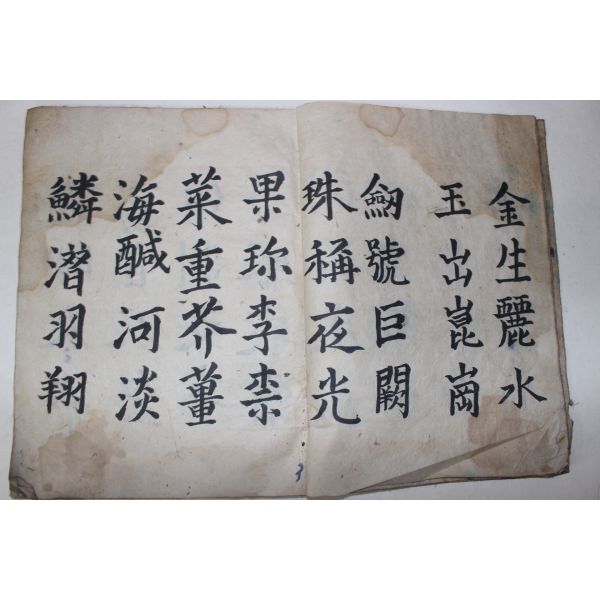 金生麗水
玉出崑崗
劒號巨闕
珠稱夜光
果珎李柰
菜重芥薑
海鹹河淡
鱗潛羽翔
3